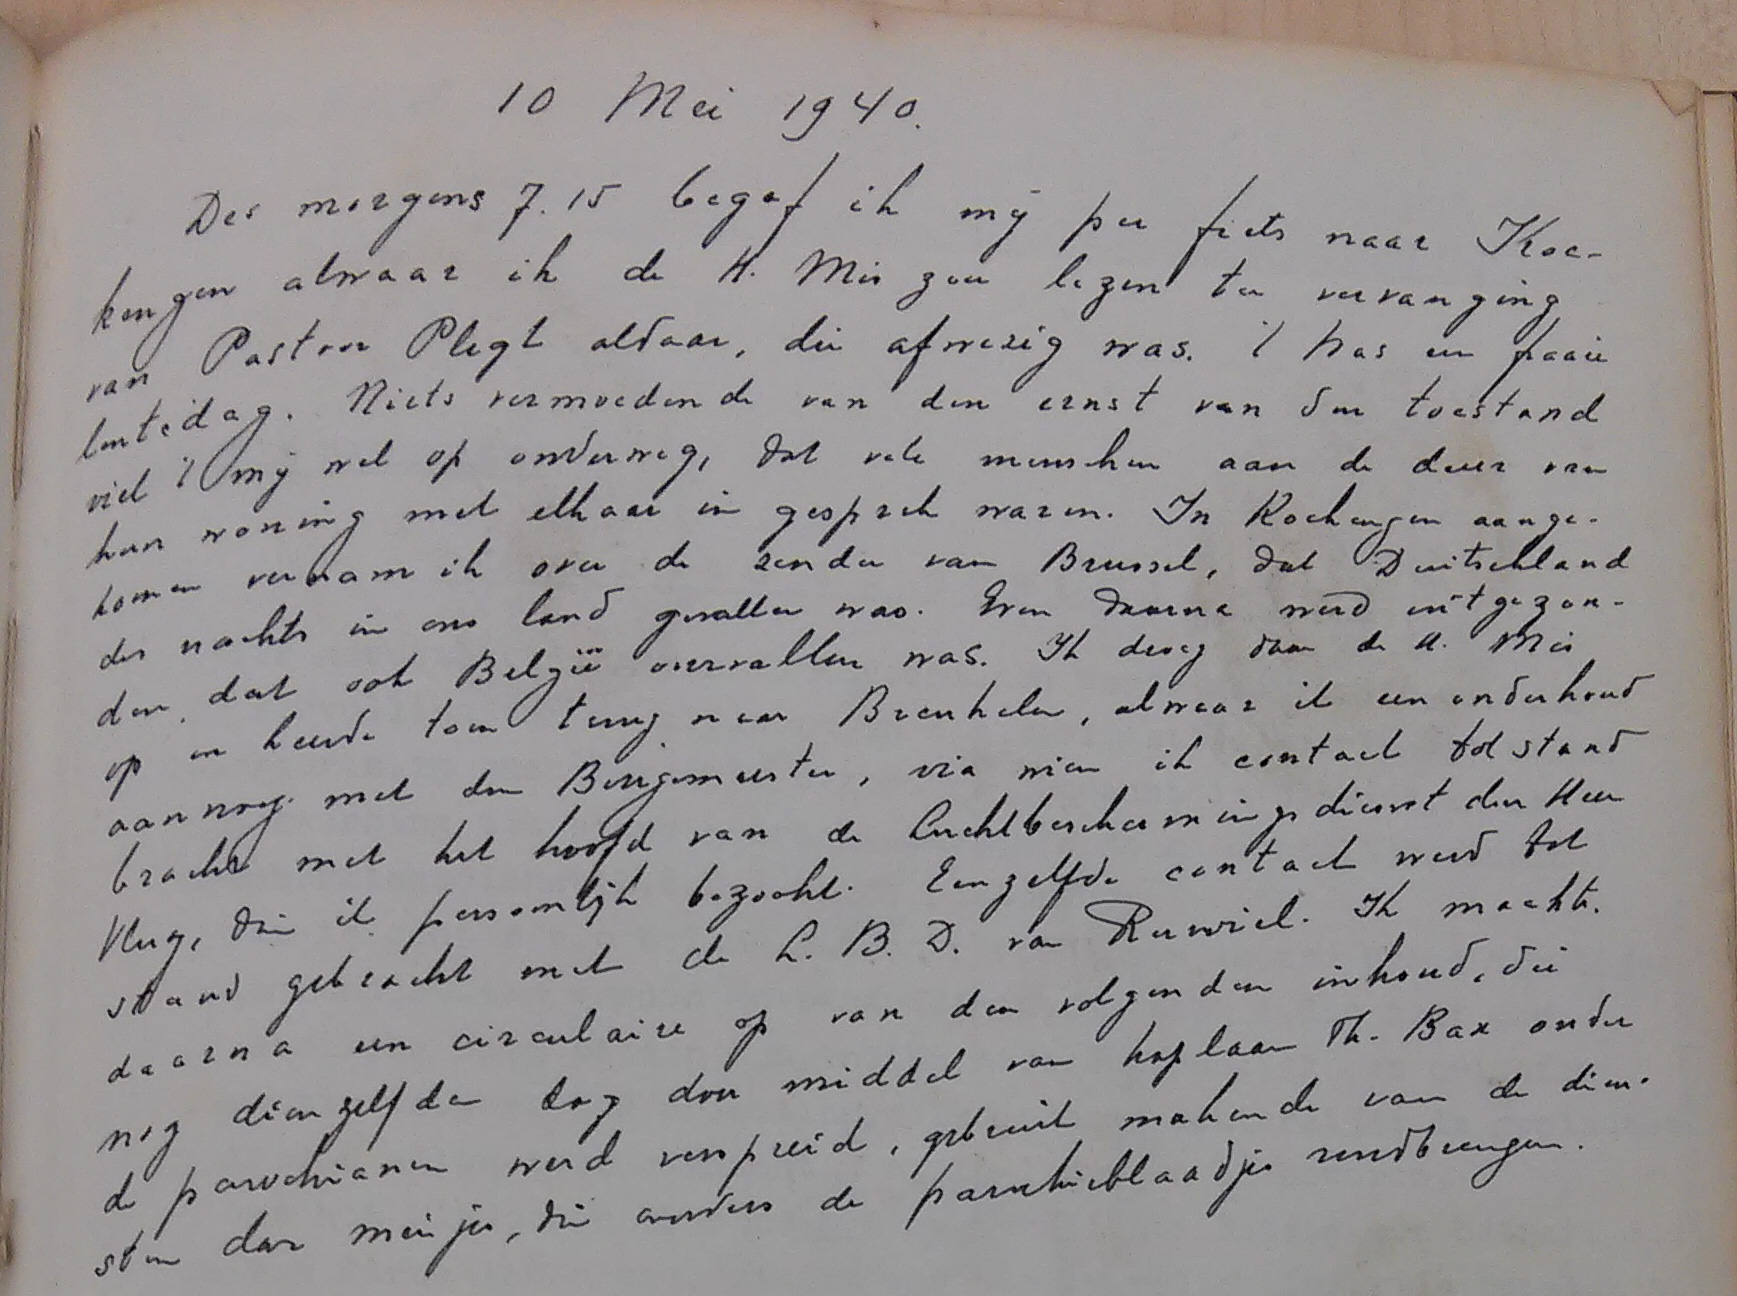 10 Mei 1940.
Des morgens 7.15 begaf ik mij per fiets naar Koc-
kengen alwaar ik de H. Mis zou lezen ter vervanging
van Pastoor Plegt aldaar, die afwezig was. 't Was een fraaie
lentedag. Niets vermoedende van den ernst van den toestand
viel 't mij wel op onderweg, dat vele menschen aan de deur van
hun woning met elkaar in gesprek waren. In Kockengen aange-
komen vernam ik over de zender van Brussel, dat Duitschland
des nachts in ons land gevallen was. Even daarna werd uitgezon-
den, dat ook België overvallen was. Ik droeg dan de H. Mis
op en keerde toen terug naar Breukelen, alwaar ik een onderhoud
aanvroeg met den Burgemeester, via wien ik contact tot stand
bracht met het hoofd van de Luchtbeschermingsdienst den Heer
Vlug, dien ik persoonlijk bezocht. Eenzelfde contact werd tot
stand gebracht met de L. B. D. van Ruwiel. Ik maakte
daarna een circulaire op van den volgenden inhoud, die
nog dienzelfden dag door middel van kapelaan Th. Bax onder
de parochianen werd verspreid, gebruik makende van de dien-
sten der meisjes, die anders de parochieblaadjes rondbrengen.